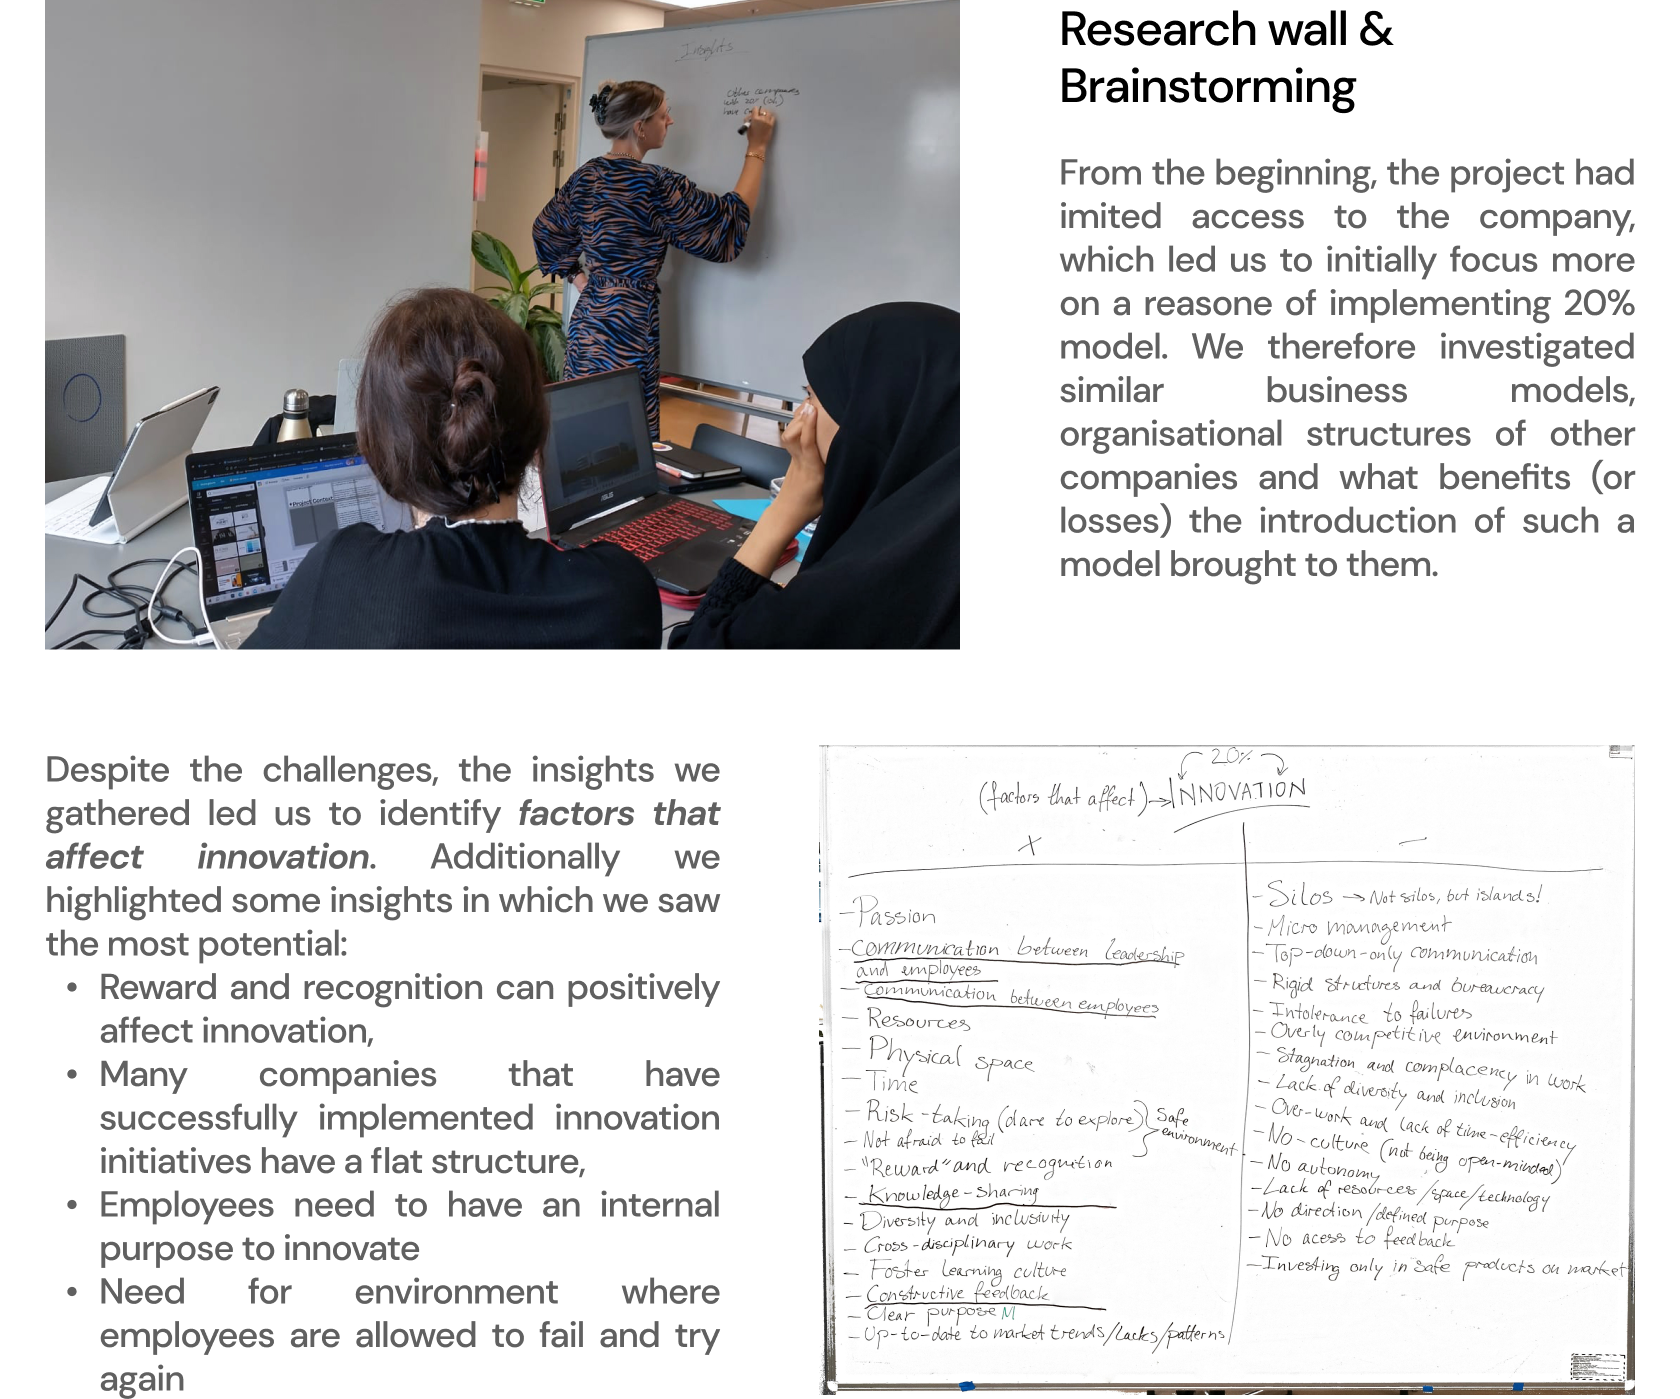 Insights
Other companies
with 20% (Oil)
have
Research wall &
Brainstorming
From the beginning, the project had
imited access to the company,
which led us to initially focus more
on a reasone of implementing 20%
model. We therefore investigated
similar business models,
organisational structures of other
companies and what benefits (or
losses) the introduction of such a
model brought to them.
Project Context
ASUS
Despite the challenges, the insights we
gathered led us to identify factors that
affect innovation. Additionally we
highlighted some insights in which we saw
the most potential:
• Reward and recognition can positively
affect innovation,
• Many companies that have
successfully implemented innovation
initiatives have a flat structure,
• Employees need to have an internal
purpose to innovate
• Need for environment where
employees are allowed to fail and try
again
20%
(factors that affect) → INNOVATION
+
–
- Passion
- Communication between leadership
and employees
- Communication between employees
- Resources
- Physical space
- Time
- Risk-taking (dare to explore)
- Not afraid to fail
Safe
environment
- "Reward" and recognition
- Knowledge-sharing
- Diversity and inclusivity
- Cross-disciplinary work
- Foster learning culture
- Constructive feedback
- Clear purpose M
- Up-to-date to market trends/lacks/patterns
- Silos → Not silos, but islands!
- Micro management
- Top-down-only communication
- Rigid structures and bureaucracy
- Intolerance to failures
- Overly competitive environment
- Stagnation and complacency in work
- Lack of diversity and inclusion
- Over-work and lack of time-efficiency
- No-culture (not being open-minded)
- No autonomy
- Lack of resources/space/technology
- No direction/defined purpose
- No acess to feedback
- Investing only in safe products on market